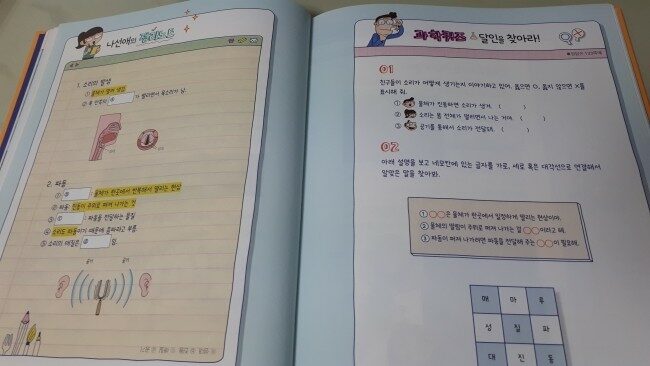 나선애의 정리노트
1. 소리의 발생
① 물체가 떨려 생김
② 목 안쪽의 ⓐ 가 떨리면서 목소리가 남.
2. 파동
① ⓑ : 물체가 한곳에서 반복해서 떨리는 현상
② 파동: 진동이 주위로 퍼져 나가는 것
③ ⓒ : 파동을 전달하는 물질
④ 소리도 파동이기 때문에 음파라고 부름
⑤ 소리의 매질은 ⓓ 임.
공기 공기
과학퀴즈 달인을 찾아라!
01
친구들이 소리가 어떻게 생기는지 이야기하고 있어. 옳으면 O, 옳지 않으면 X를
표시해 줘.
① 물체가 진동하면 소리가 생겨. ( )
② 소리는 몸 전체가 떨리면서 나는 거야. ( )
③ 공기를 통해서 소리가 전달돼. ( )
02
아래 설명을 보고 네모칸에 있는 글자를 가로, 세로 혹은 대각선으로 연결해서
알맞은 말을 찾아봐.
① ○○은 물체가 한곳에서 일정하게 떨리는 현상이야.
② 물체의 떨림이 주위로 퍼져 나가는 걸 ○○이라고 해.
③ 파동이 퍼져 나가려면 파동을 전달해 주는 ○○이 필요해.
매 아 루
성 질 파
대 진 동